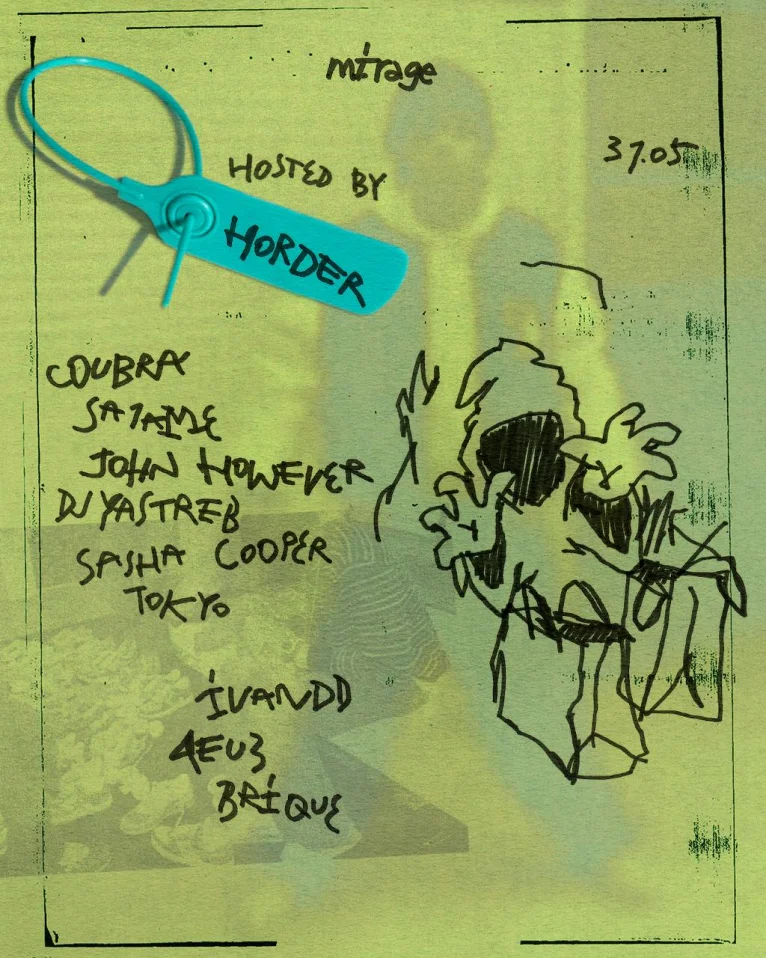 mirage
31.05
HOSTED BY
HORDER
COUBRA
SATAME
JOHN HOWEVER
DJ YASTREB
SASHA COOPER
TOKYO
IVANDD
4EU3
BRIQUE